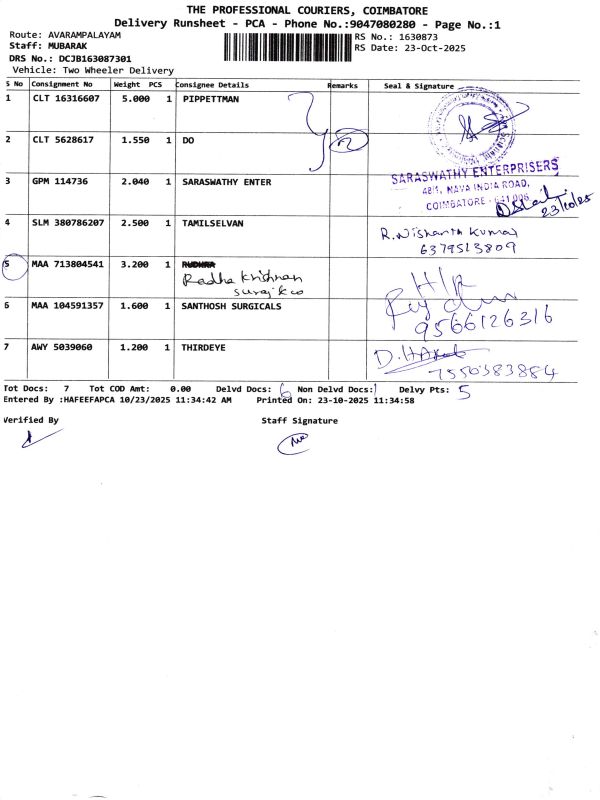 THE PROFESSIONAL COURIERS, COIMBATORE
Delivery Runsheet - PCA - Phone No.:9047080280 - Page No.:1
Route: AVARAMPALAYAM
RS No.: 1630873
Staff: MUBARAK
RS Date: 23-Oct-2025
DRS No.: DCJB163087301
Vehicle: Two Wheeler Delivery
S No Consignment No Weight PCS Consignee Details Remarks Seal & Signature
1 CLT 16316607 5.000 1 PIPPETTMAN
2 CLT 5628617 1.550 1 DO 2
3 GPM 114736 2.040 1 SARASWATHY ENTER
SARASWATHY ENTERPRISERS
48/1, NAVA INDIA ROAD,
COIMBATORE - 641 006
23/10/25
4 SLM 380786207 2.500 1 TAMILSELVAN
R. Nishanth Kumar
6379513809
5 MAA 713804541 3.200 1
Radha Krishnan
Suraj & co
6 MAA 104591357 1.600 1 SANTHOSH SURGICALS
9566126316
7 AWY 5039060 1.200 1 THIRDEYE
7550383884
Tot Docs: 7 Tot COD Amt: 0.00 Delvd Docs: 6 Non Delvd Docs: 1 Delvy Pts: 5
Entered By :HAFEEFAPCA 10/23/2025 11:34:42 AM Printed On: 23-10-2025 11:34:58
Verified By Staff Signature